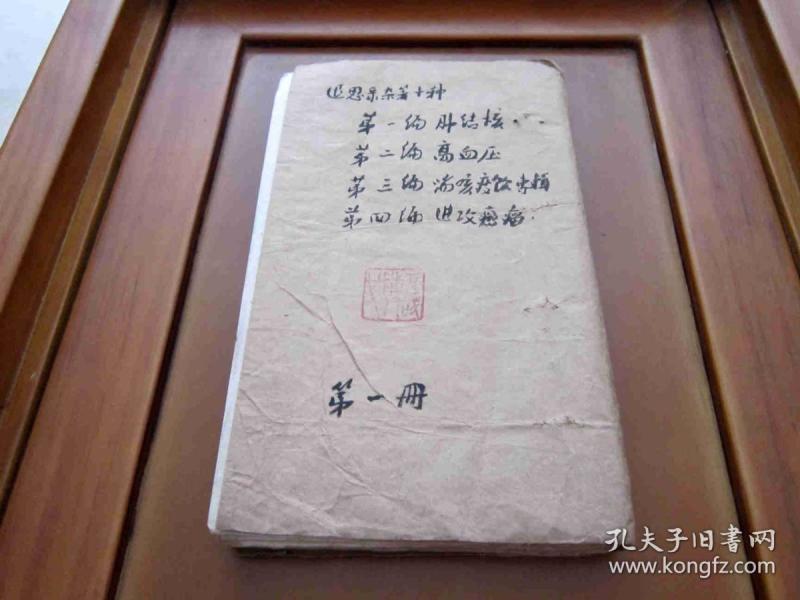 思示杂著十种
第一编 肝结核
第二编 高血压
第三编 喘咳痰饮专辑
第四编 进攻癌瘤
第一册
孔夫子旧书网
www.kongfz.com